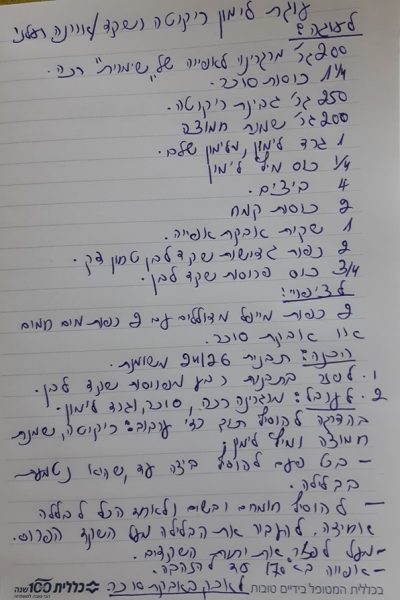 עוגת לימון ריקוטה ושקד/אוויינה רעלני
לעוגה:
200 גר' מרגרינה לאפייה של "שימורית" רכה.
1 1/4 כוסות סוכר.
250 גר' גבינת ריקוטה.
200 גר' שמנת חמוצה
1 גרד לימון, מלימון שלם.
1/4 כוס מיץ לימון
4 ביצים.
2 כוסות קמח
1 שקית אבקת אפייה.
2 כפות גדושות שקד לבן טחון דק.
3/4 כוס פרוסות שקד לבן.
לציפוי:
2 כפות מייפל מדוללים עם 2 כפות מים חמים
או אבקת סוכר.
הכנה: תבנית 24/26 משומנת.
1. לפזר בתבנית רבע מפרוסות שקד לבן.
2. לערבל: מרגרינה רכה, סוכר, וגרד לימון.
בהדרגה להוסיף תוך כדי ערבוב: ריקוטה, שמנת
חמוצה ומיץ לימון;
- בכל פעם להוסיף ביצה עד שהיא נטמעת
בבלילה.
- להוסיף חומרים יבשים ולאחד הכל לבלילה
אחידה. להעביר את הבלילה מעל השקד הפרוס.
- מעל לפזר את יתרת השקדים.
- אפייה ב 170° עד להזהבה.
לאבק באבקת סוכר.
כללית המטופל בידיים טובות
כללית 100 שנה